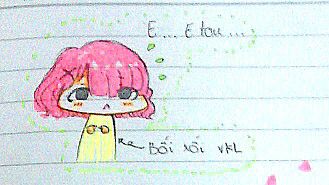 E... Etou...
Bối rối vkl